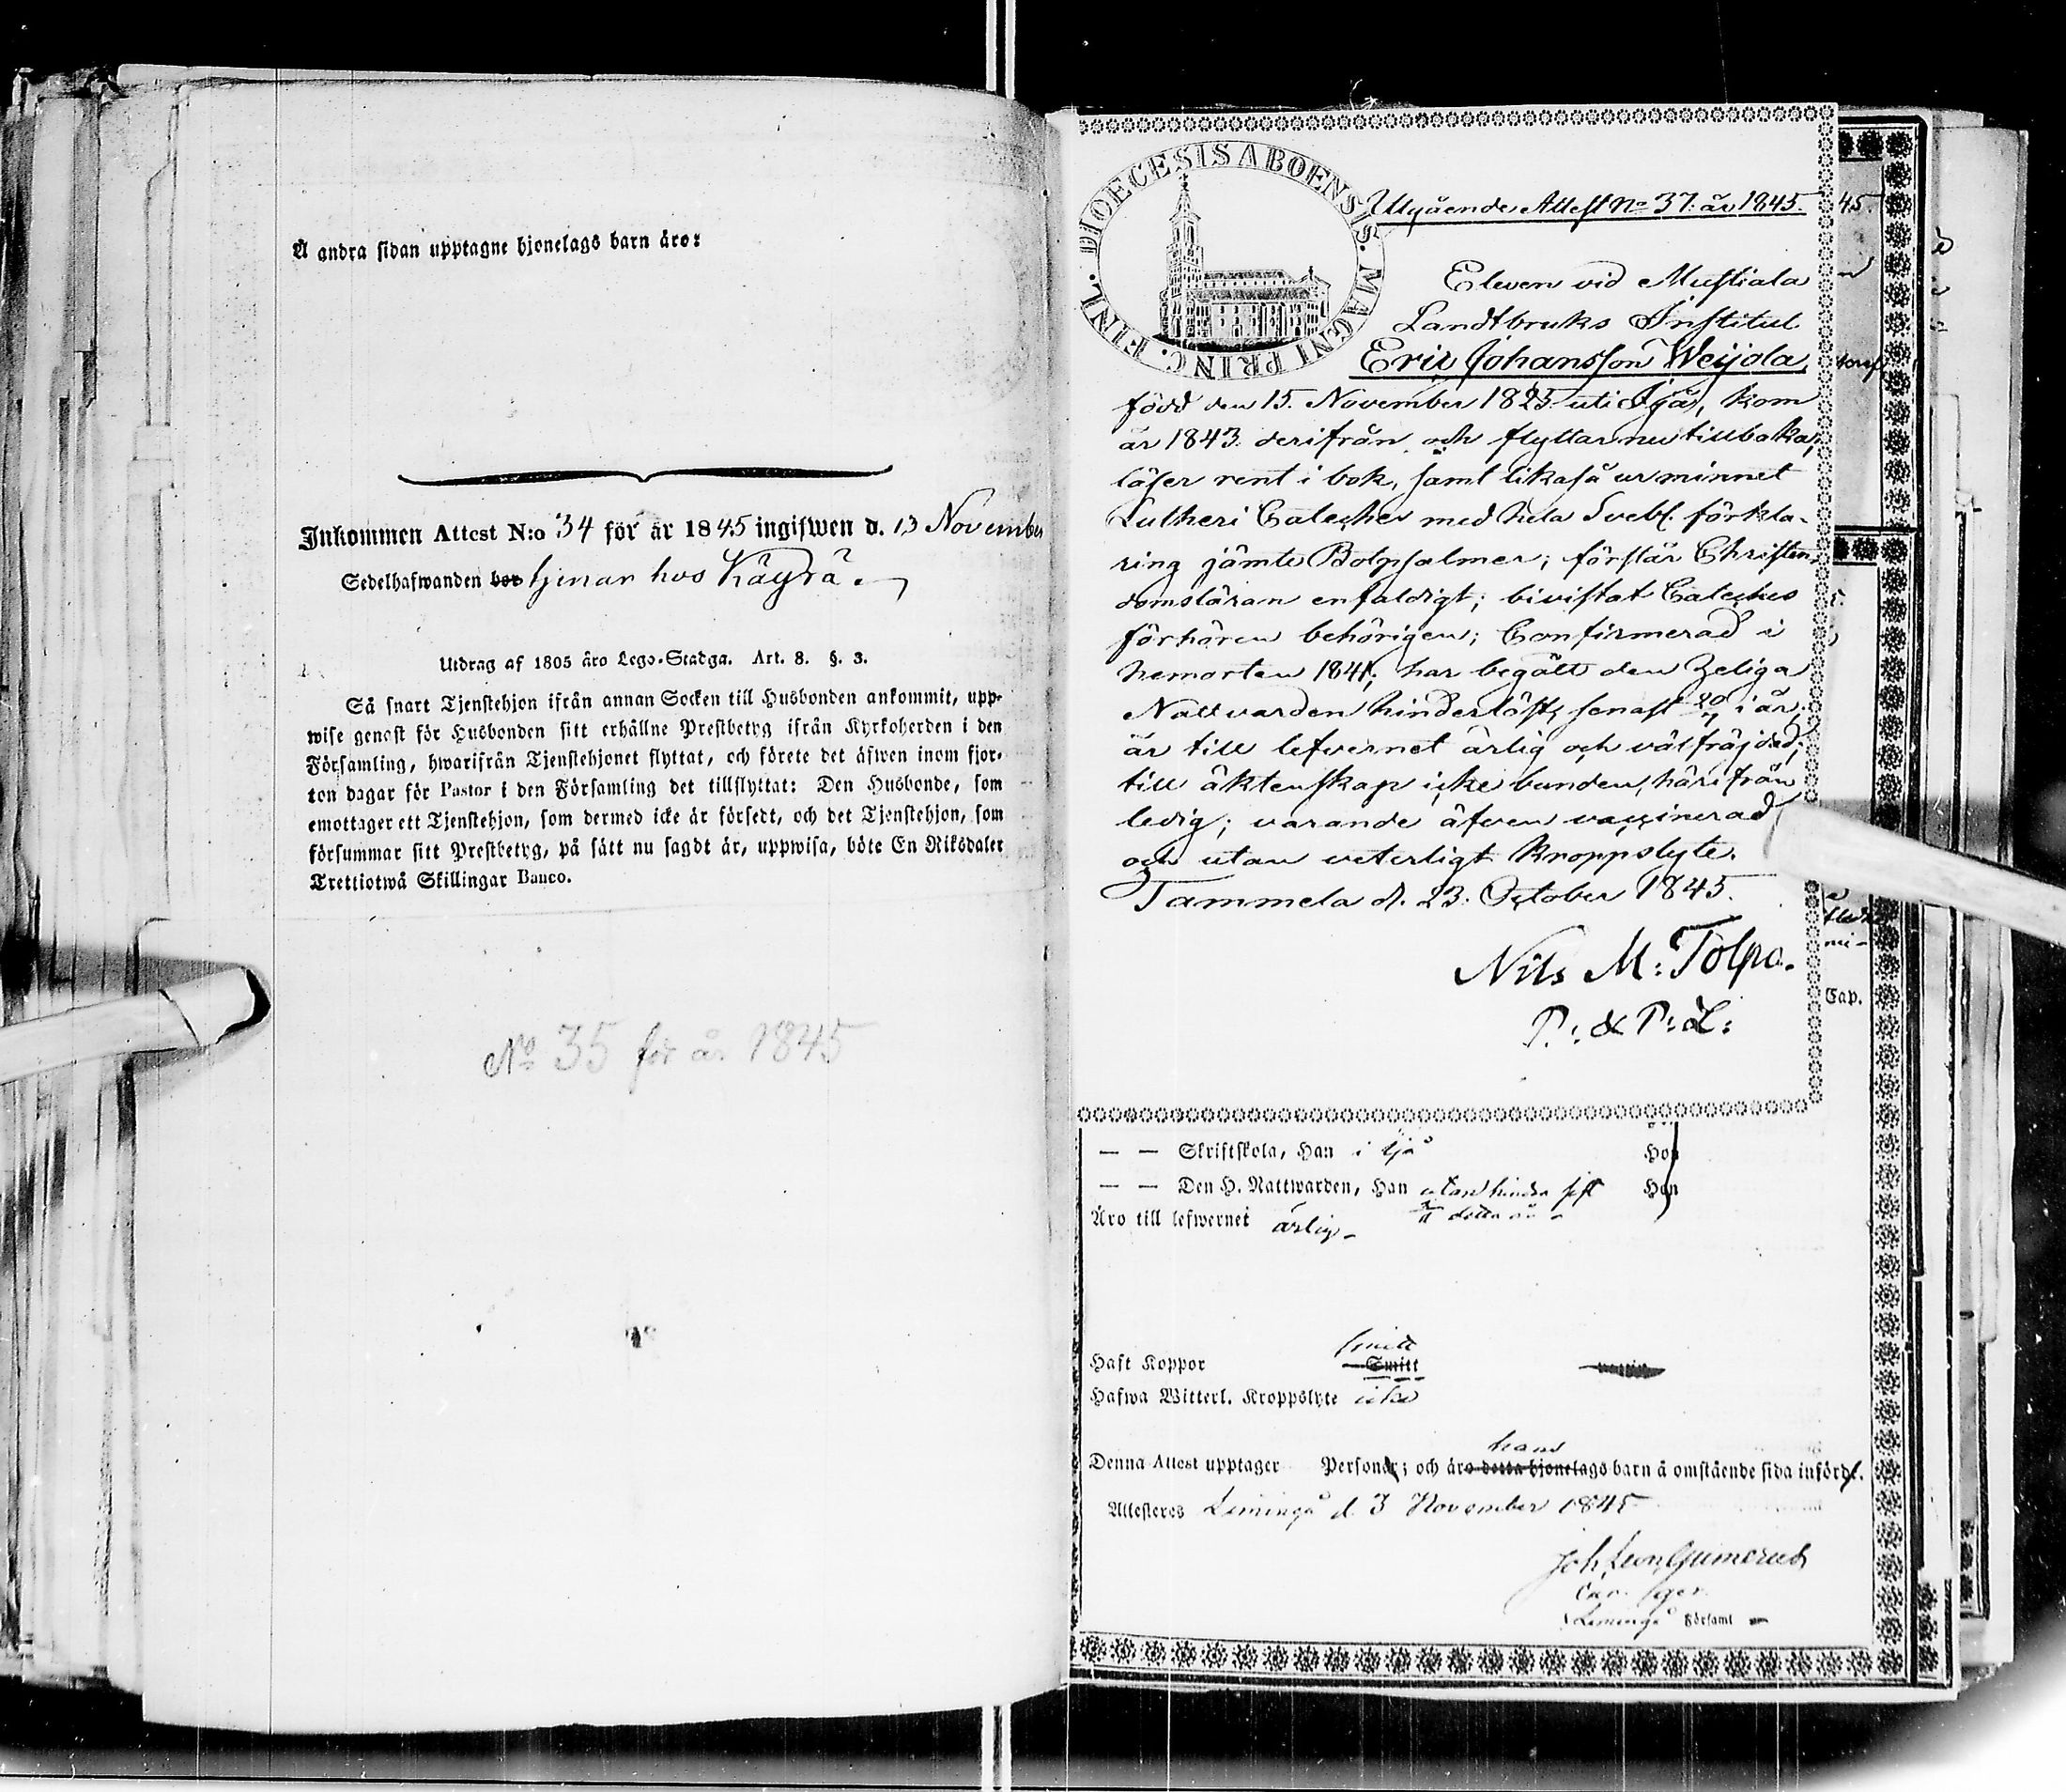 Å andra sidan upptagne hjonelags barn äro:
Inkommen Attest N:o 34 för år 1845 ingifwen d. 13 November
Sedelhafwanden bor tjenar hos Käyrä.
Utdrag af 1805 års Lego-Stadga. Art. 8. §. 3.
Så snart Tjenstehjon ifrån annan Socken till Husbonden ankommit, upp-
wise genast för Husbonden sitt erhållne Prestbetyg ifrån Kyrkoherden i den
Församling, hwarifrån Tjenstehjonet flyttat, och förete det äfwen inom fjor-
ton dagar för Pastor i den Församling det tillflyttat: Den Husbonde, som
emottager ett Tjenstehjon, som dermed icke är försedt, och det Tjenstehjon, som
försummar sitt Prestbetyg, på sätt nu sagdt är, uppwisa, böte En Riksdaler
Trettiotwå Skillingar Banco.
No 35 för år 1845
DIOECESIS ABOENSIS. MAGNI PRINC. FINL.
Utgående Attest No 37. år 1845.
Eleven vid Mustiala
Landtbruks Institut
Eric Johansson Weijola,
född den 15. November 1825 uti Ijå, kom
år 1843 derifrån och flyttar nu tillbaka,
läser rent i bok, samt likaså ur minnet
Lutheri Cateches med hela Svebl. förkla-
ring jämte Botpsalmer; förstår Christen-
domsläran enfaldigt; bivistat Cateches
förhören behörigen; Confirmerad i
hemorten 1841; har begått den Heliga
Nattvarden hinderlöst, senast 20/7 i år;
är till lefvernet ärlig och välfräjdad;
till äktenskap icke bunden, härifrån
ledig; varande äfven vaccinerad
och utan veterligt kroppslyte.
Tammela d. 23. October 1845.
Nils M: Tolpo.
P: & P: L:
— — Skriftskola, Han i Ijå Hon
— — Den H. Nattwarden, Han utan hinder sist Hon
detta år
Äro till lefwernet ärlig
Smitt
Haft Koppor Smitt
Hafwa Witterl. Kroppslyte icke
hans
Denna Attest upptager Personer; och äro detta hjonelags barn å omstående sida införde.
Attesteras Limingå d. 3 November 1845
Joh. Leon. Gumerus
Limingå Församl